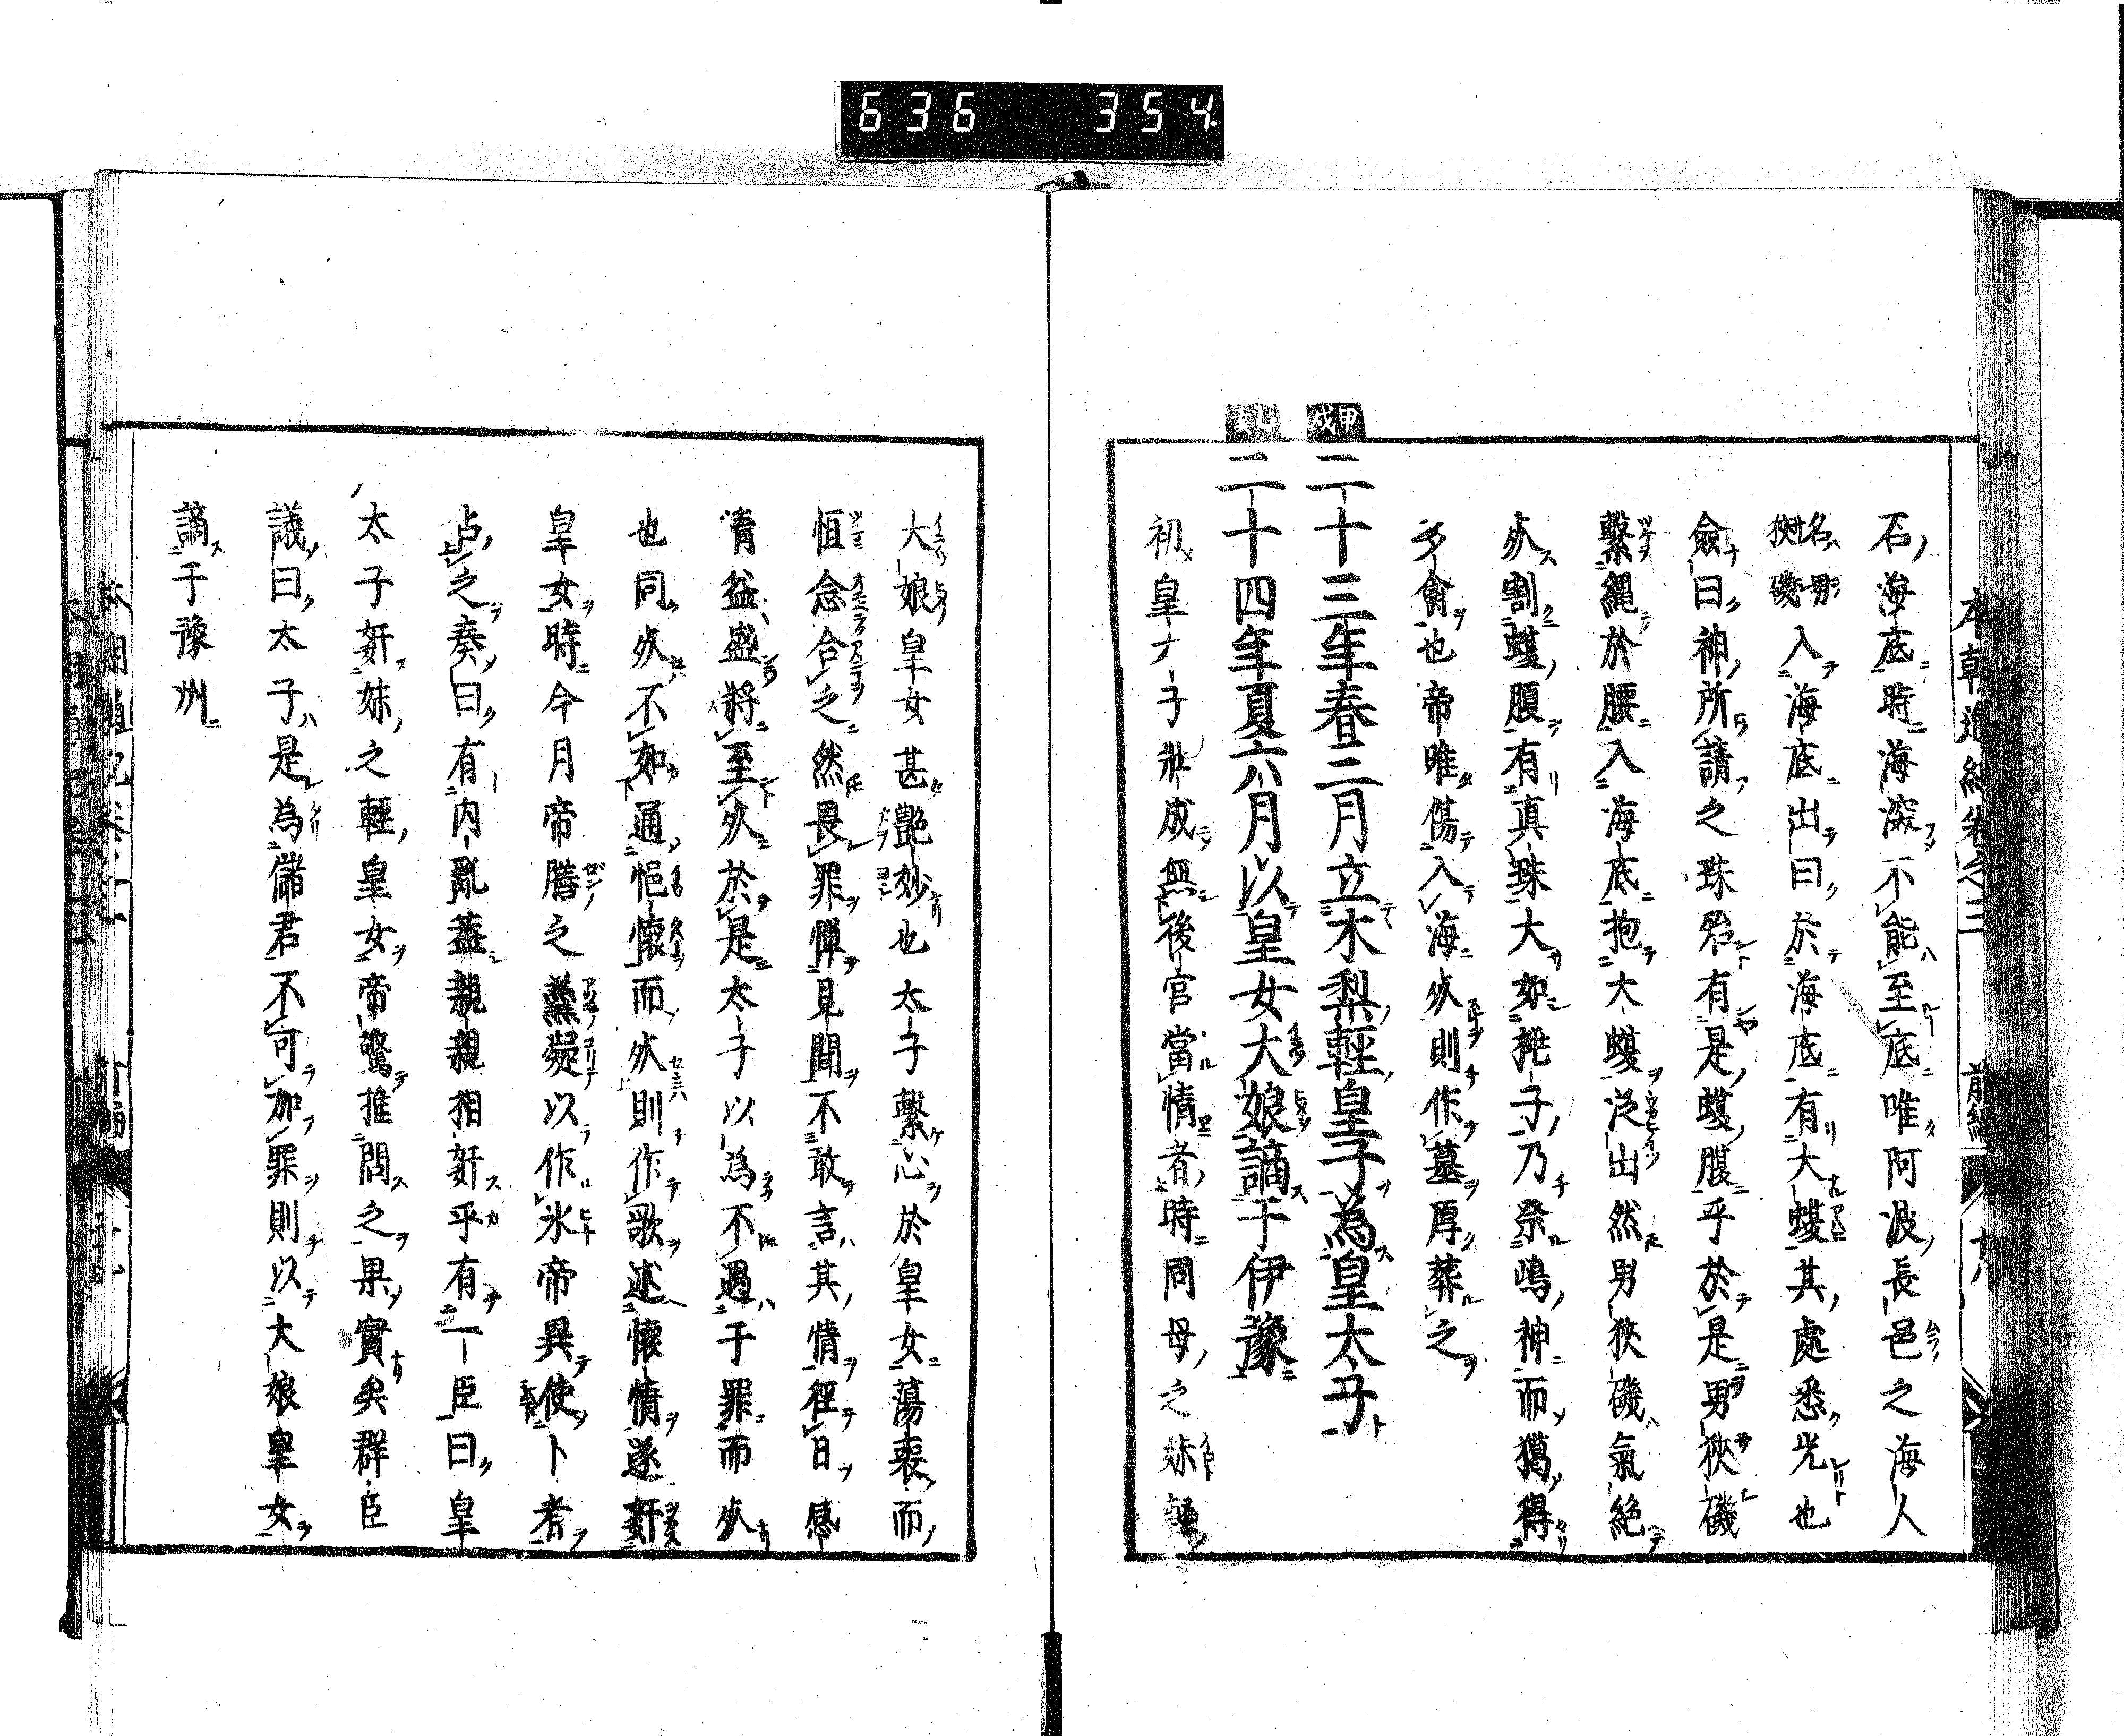 本朝通紀卷之三 前編
石海底時海深不能至底唯阿波長邑之海人
名男狹磯入海底出曰於海底有大蝮其處悉光也
僉曰神所請之珠殆有是蝮腹乎於是男狹磯
繫繩於腰入海底抱大蝮泛出然男狹磯氣絕
死割蝮腹有真珠大如桃子乃祭嶋神而獦得
多禽也帝唯傷入海死則作墓厚葬之
甲戌 二十三年春三月立木梨輕皇子為皇太子
乙亥 二十四年夏六月以皇女大娘謫于伊豫
初皇太子壯成無後宮當情者時同母之妹輕
大娘皇女甚艷妙也太子繫心於皇女蕩衷而
恒念合之然畏罪憚見聞不敢言其情徑日感
情益盛將至死於是太子以為不遇于罪而死
也同死不如通悒懷而死則作歌述懷情遂姧
皇女時今月帝膳之羹凝以作氷帝異使卜者
占之奏曰有內亂蓋親親相姧乎有一臣曰皇
太子姧妹之輕皇女帝驚推問之果實矣群臣
議曰太子是為儲君不可加罪則以大娘皇女
謫于豫州
636 354